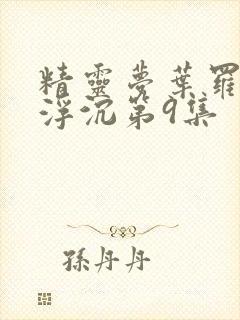 精靈夢葉羅
浮沉第9集
孫丹丹